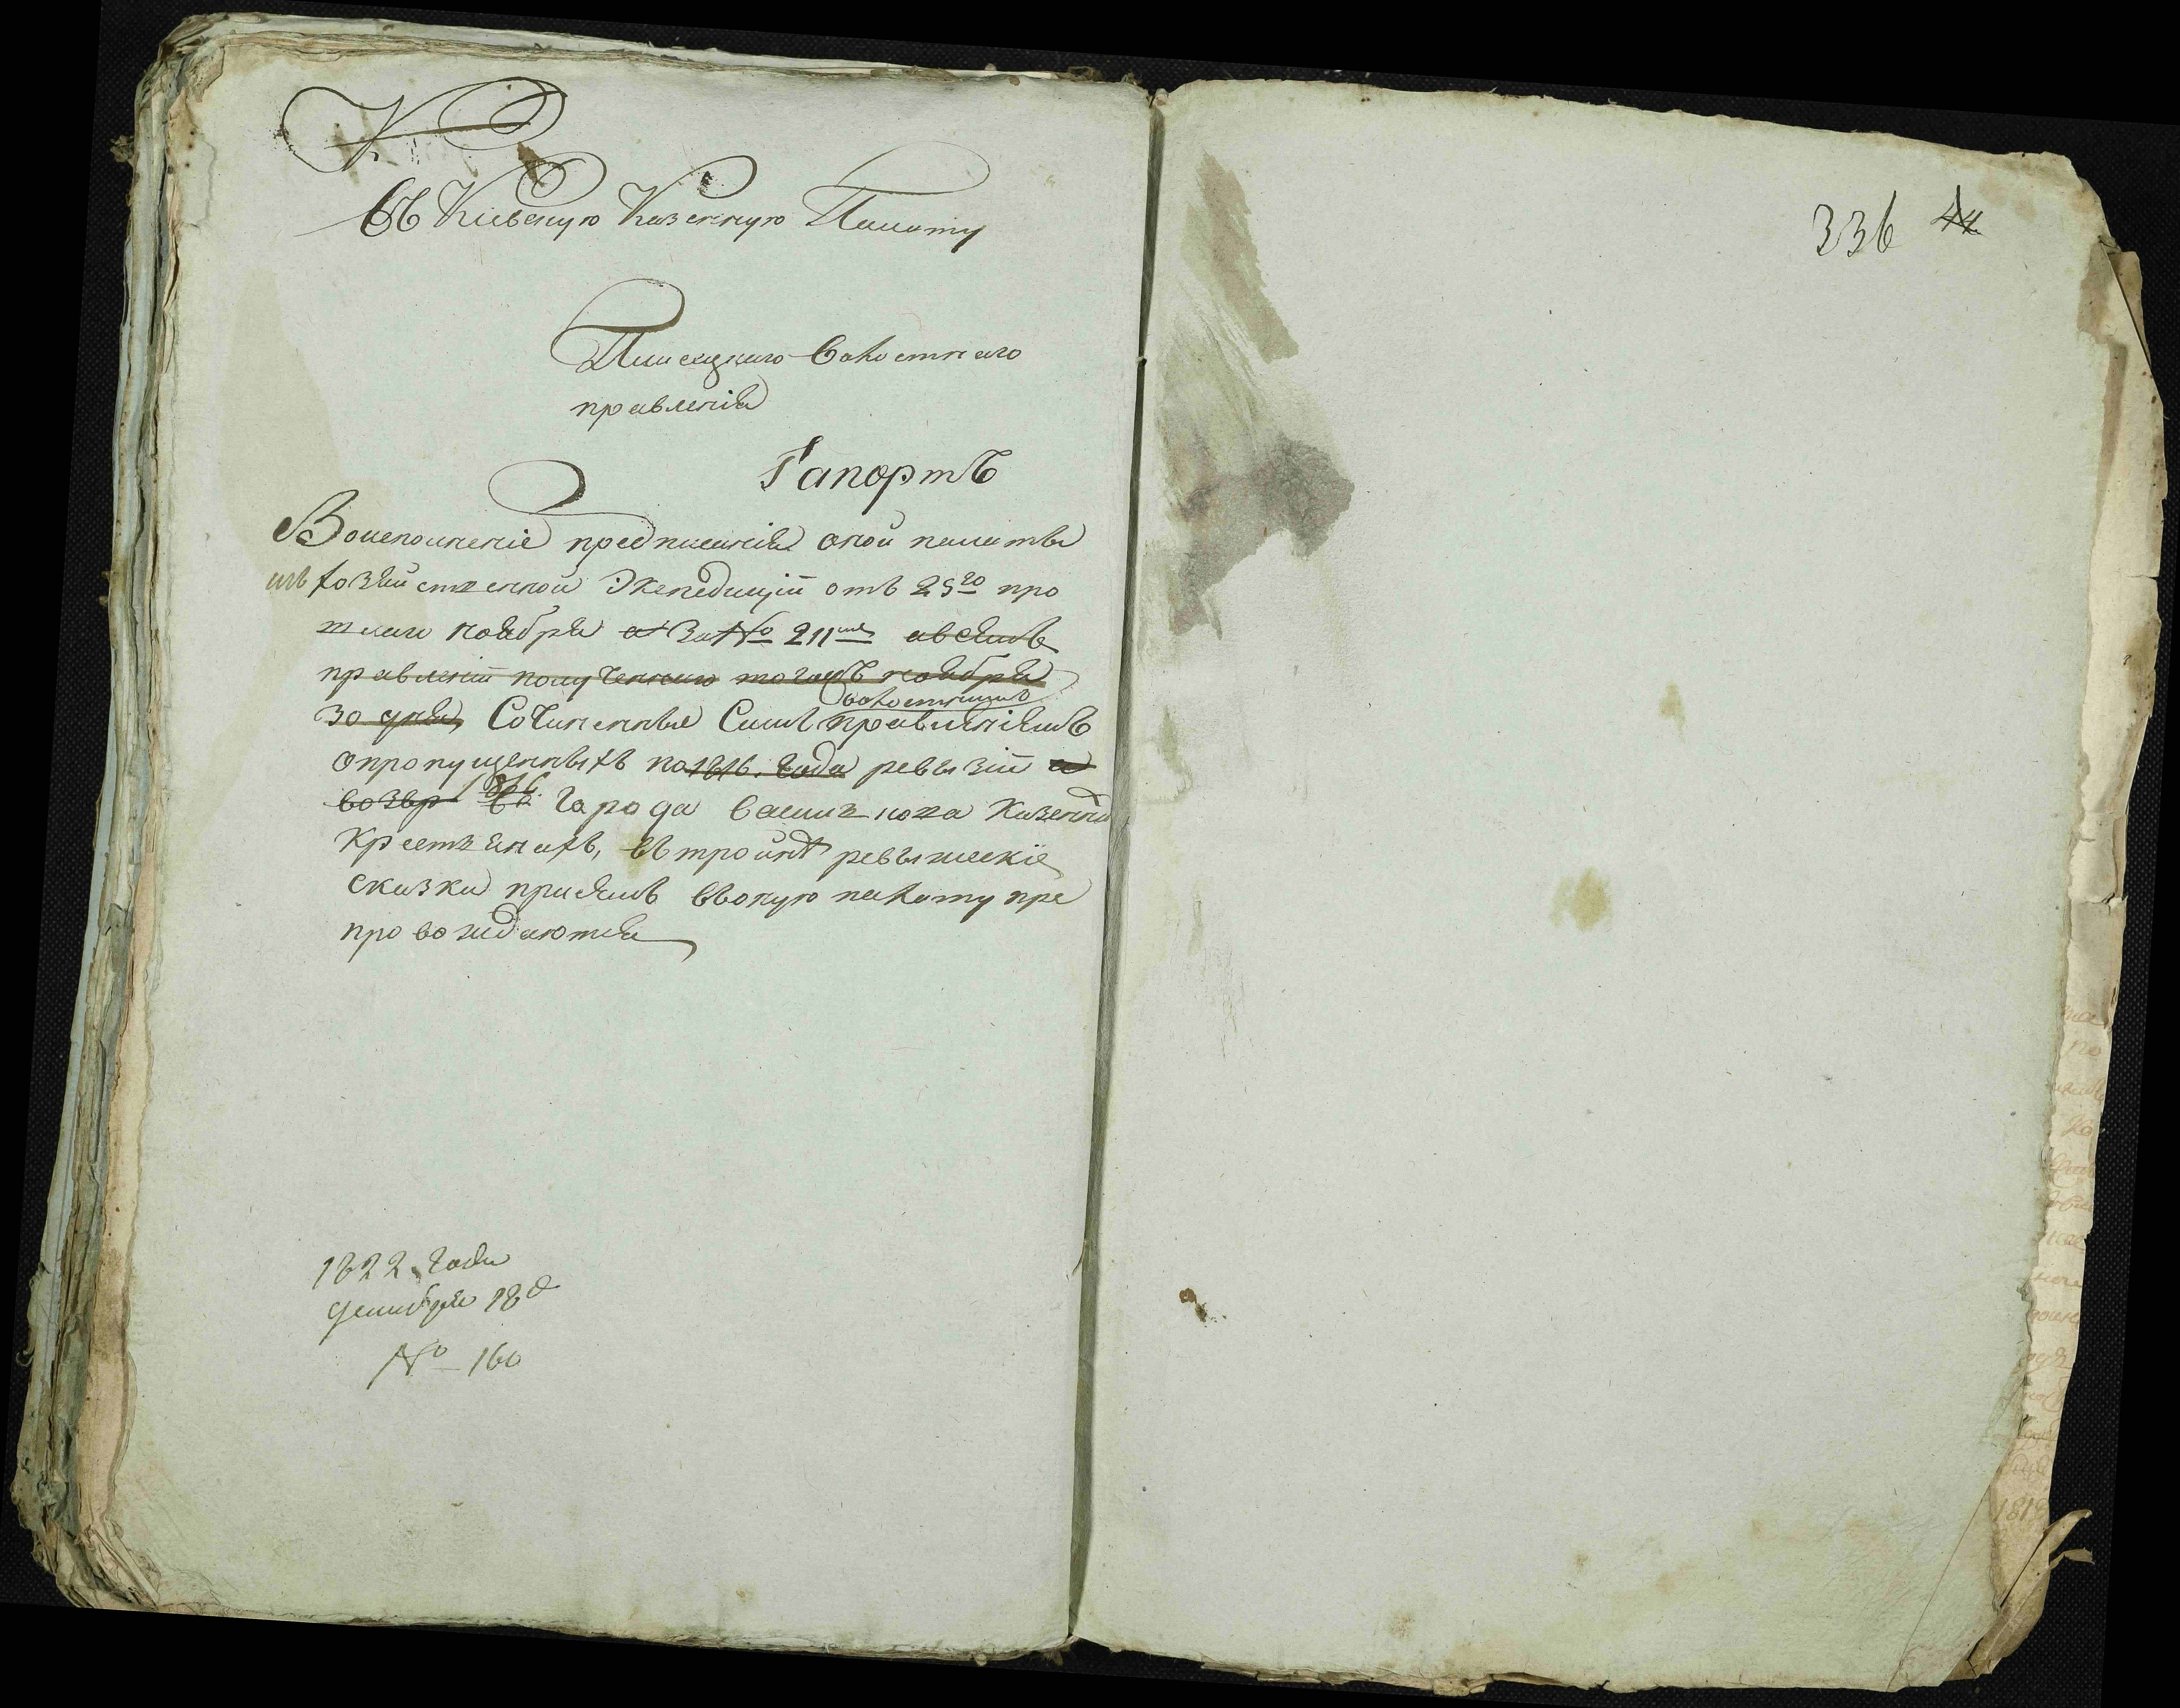 К
Въ Киевскую Казенную Палату
волостнаго
правленія
Рапортъ
Воисполненіе предписанія оной палаты
изъ хозяйственной Экспедиціи отъ 25го про
тлаго ноября а за № 211мъ
правленіи полученнаго тогожъ ноября
30 дня, Сочиненные Симъ правленіямъ
волостнымъ
опропущенныхъ по 1816. года ревызіи и
возвр 1816.
Города Казенных
Крестьянахъ, втройнѣ ревыжскіе
сказки присемъ ввоную палату пре
провождаются
1822 года
декабря 18 д
№ 160
336 44